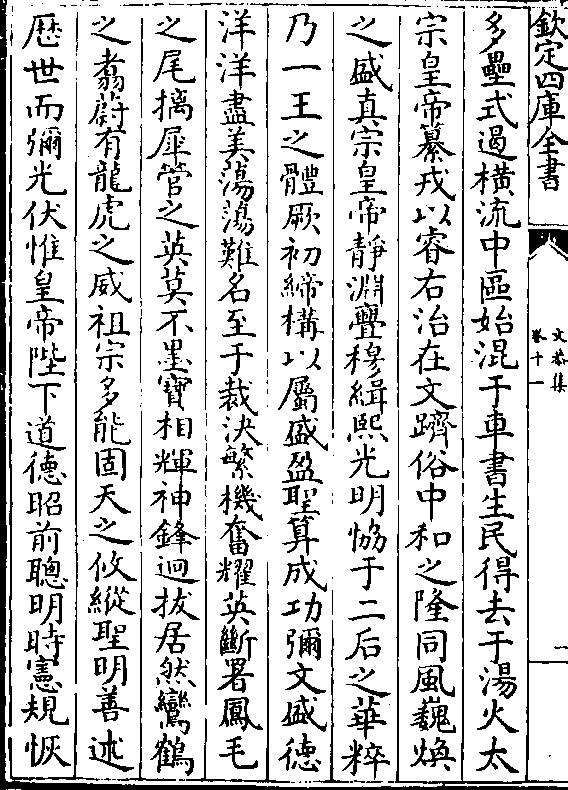 欽定四庫全書
文恭集
卷十一
一
多壘式遏橫流中區始混于車書生民得去于湯火太
宗皇帝纂戎以睿右治在文躋俗中和之隆同風巍煥
之盛真宗皇帝靜淵亹穆緝熙光明恊于二后之華粹
乃一王之體厥初締構以屬盛盈聖算成功彌文盛德
洋洋盡美蕩蕩難名至于裁決繁機奮耀英斷署鳳毛
之尾摛犀管之英莫不墨寶相輝神鋒迥拔居然鸞鶴
之翥蔚有龍虎之威祖宗多能固天之攸縱聖明善述
歷世而彌光伏惟皇帝陛下道德昭前聰明時憲規恢